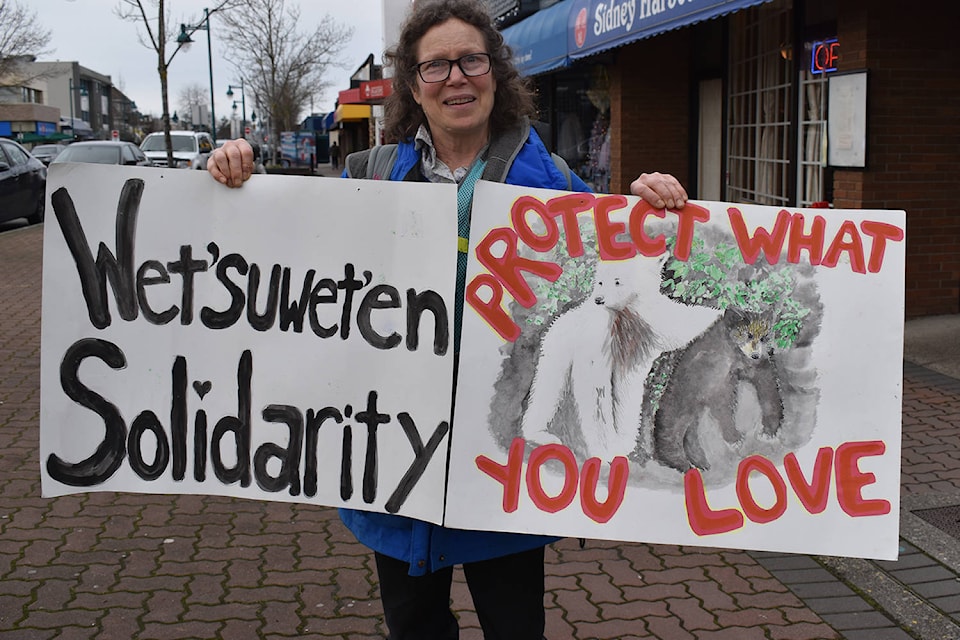 Sidney Harbou
Wet'suwet'en
Solidarity
PROTECT WHAT
YOU LOVE